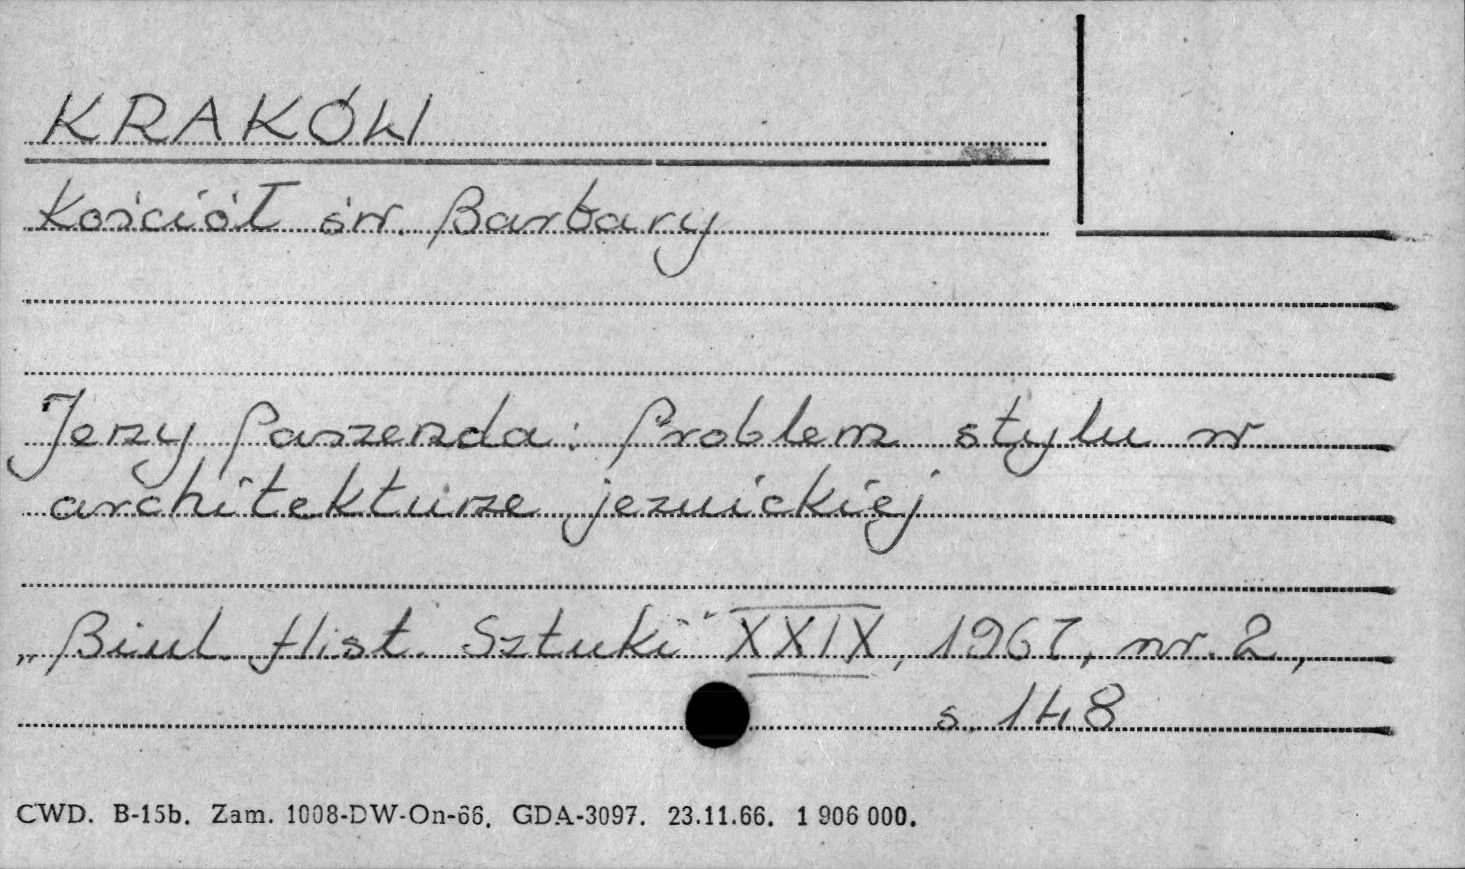 KRAKÓW
Kościół św. Barbary
Jerzy Paszenda: Problem stylu w
architekturze jezuickiej
„Biul. Hist. Sztuki" XXIX, 1967, nr. 2,
s. 148
CWD. B-15b. Zam. 1008-DW-On-66. GDA-3097. 23.11.66. 1 906 000.